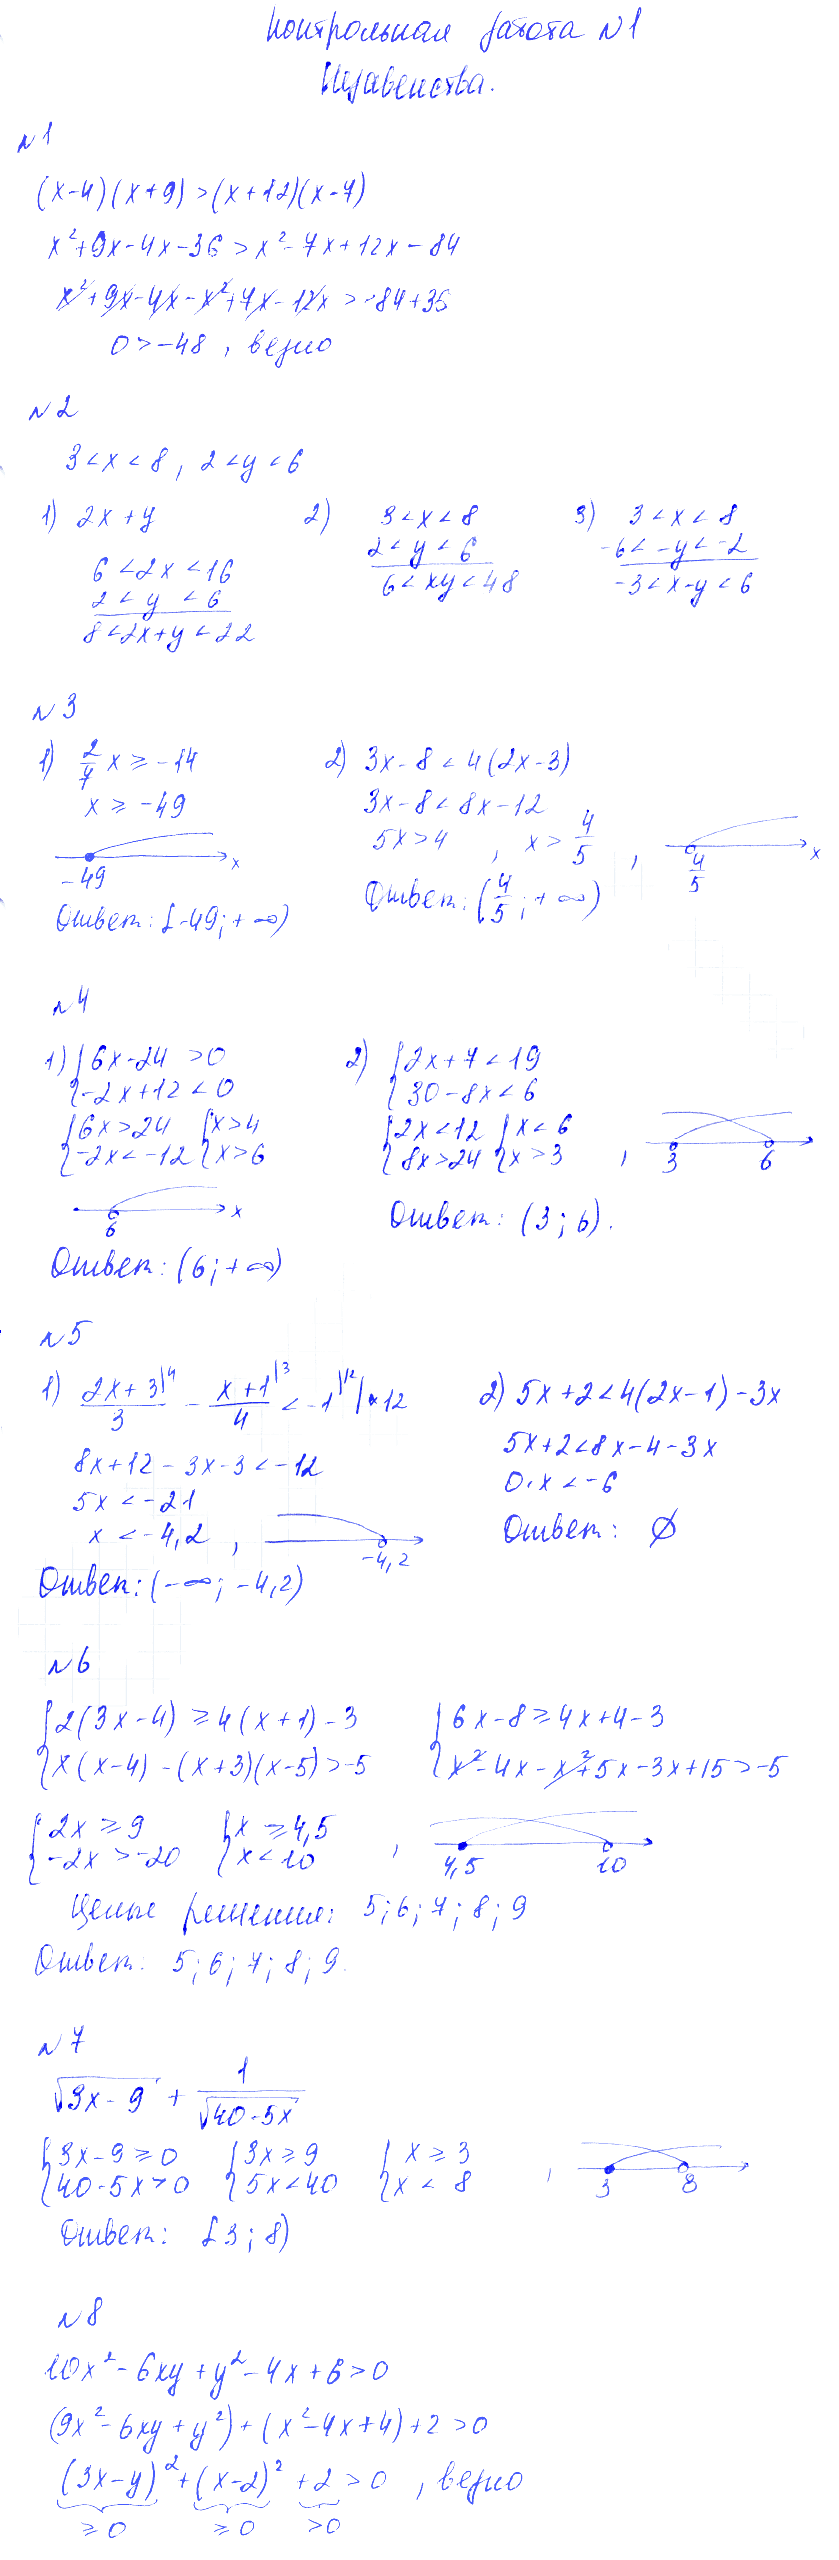 Контрольная работа №1
Неравенства.
№1
(x-4)(x+9)>(x+12)(x-7)
x²+9x-4x-36>x²-7x+12x-84
x²+9x-4x-x²+7x-12x>-84+36
0>-48, верно
№2
3<x<8, 2<y<6
1) 2x+y
6<2x<16
2<y<6
8<2x+y<22
2) 3<x<8
2<y<6
6<xy<48
3) 3<x<8
-6<-y<-2
-3<x-y<6
№3
1) 2/7 x ≥ -14
x ≥ -49
-49 x
Ответ: [-49; +∞)
2) 3x-8<4(2x-3)
3x-8<8x-12
5x>4, x> 4/5, 4/5 x
Ответ: (4/5; +∞)
№4
1) {6x-24>0
{-2x+12<0
{6x>24 {x>4
{-2x<-12 {x>6
6 x
Ответ: (6; +∞)
2) {2x+7<19
{30-8x<6
{2x<12 {x<6
{8x>24 {x>3, 3 6
Ответ: (3; 6).
№5
1) (2x+3)/3 |4 - (x+1)/4 |3 < -1 |12 | ×12
8x+12-3x-3<-12
5x<-21
x<-4,2, -4,2
Ответ: (-∞; -4,2)
2) 5x+2<4(2x-1)-3x
5x+2<8x-4-3x
0·x<-6
Ответ: ∅
№6
{2(3x-4)≥4(x+1)-3 {6x-8≥4x+4-3
{x(x-4)-(x+3)(x-5)>-5 {x²-4x-x²+5x-3x+15>-5
{2x≥9 {x≥4,5
{-2x>-20 {x<10, 4,5 10
Целые решения: 5; 6; 7; 8; 9
Ответ: 5; 6; 7; 8; 9.
№7
√(3x-9) + 1/√(40-5x)
{3x-9≥0 {3x≥9 {x≥3
{40-5x>0 {5x<40 {x<8, 3 8
Ответ: [3; 8)
№8
10x²-6xy+y²-4x+6>0
(9x²-6xy+y²)+(x²-4x+4)+2>0
(3x-y)²+(x-2)²+2>0, верно
≥0 ≥0 >0